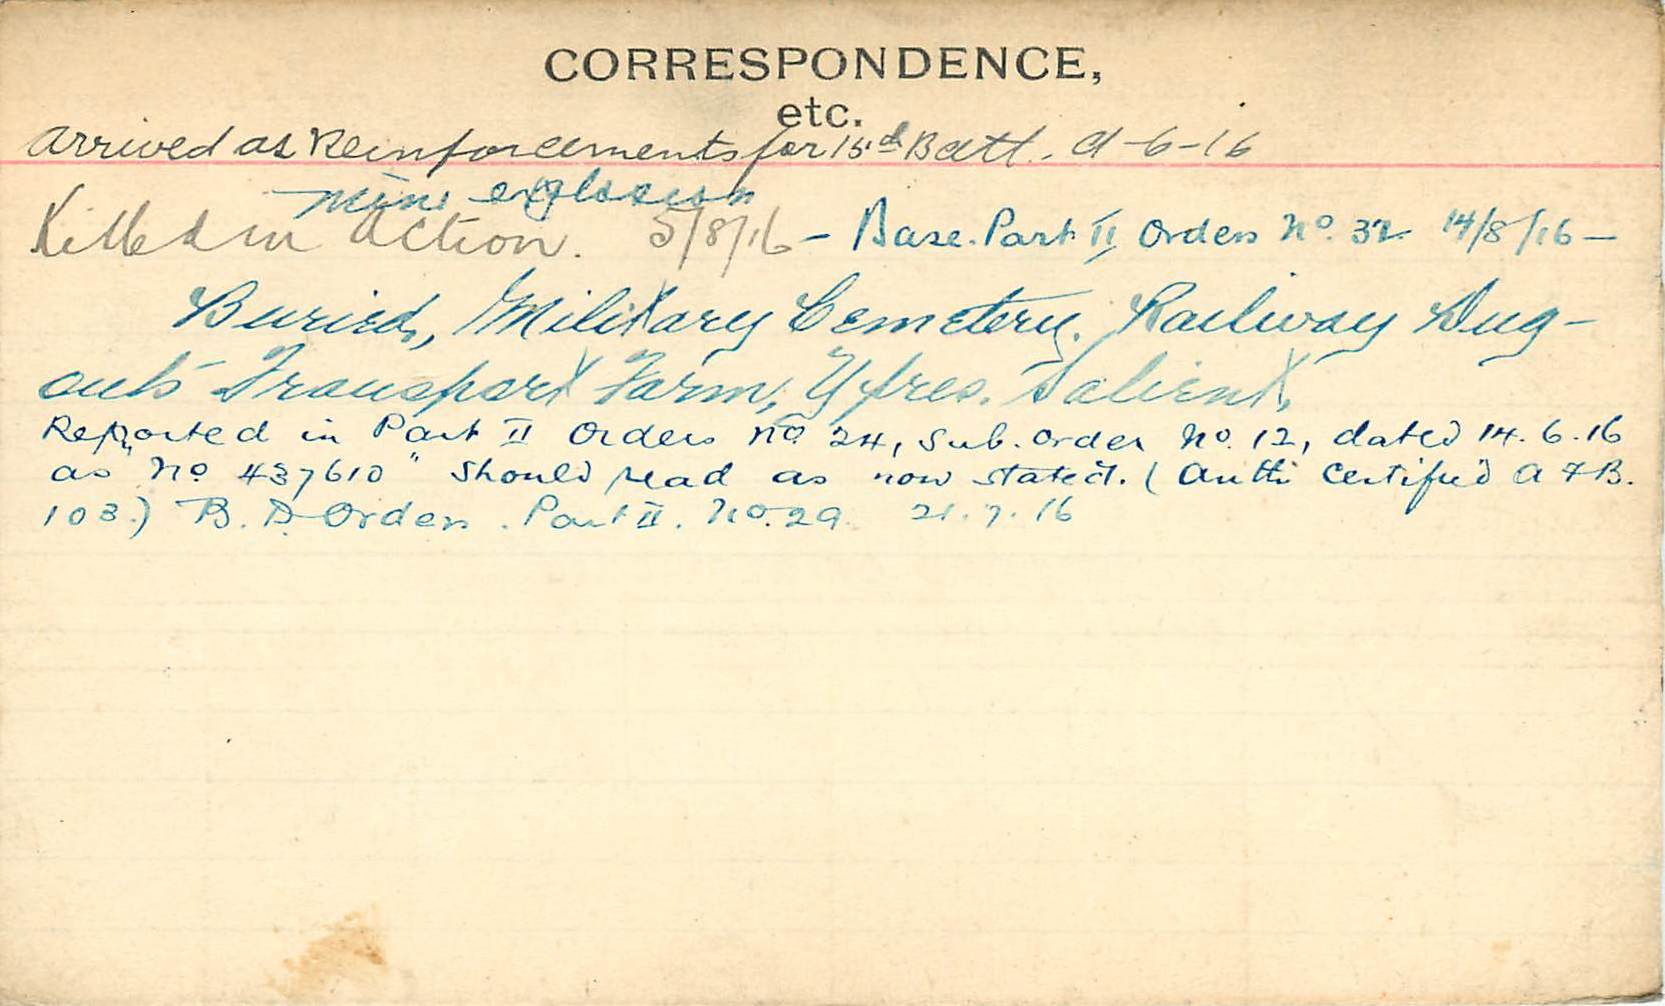 CORRESPONDENCE,
etc.
Arrived as Reinforcements for 15th Batt. 9-6-16
Mine explosion
Killed in Action. 5/8/16 - Base. Part II Orders No. 32 14/8/16 -
Buried, Military Cemetery. Railway Dug-
outs Transport Farm, Ypres. Salient,
Reported in Part II Orders No 24, Sub. Order No. 12, dated 14.6.16
as "No 437610" should read as now stated. (Auth: Certified A F B.
103.) B. D. Orders. Part II. No. 29 21.7.16